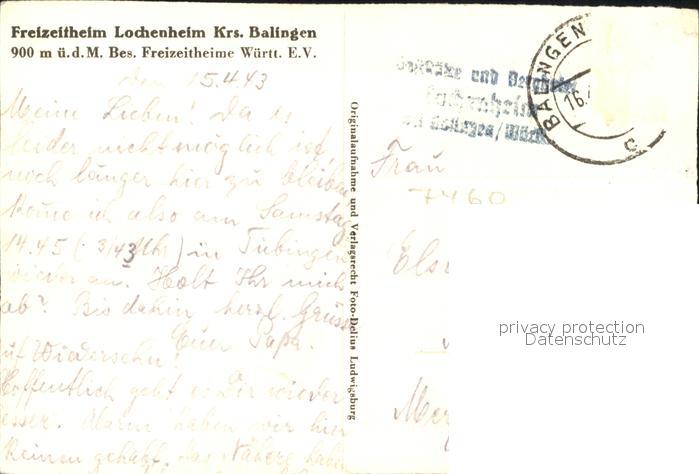 Freizeitheim Lochenheim Krs. Balingen
900 m ü.d.M. Bes. Freizeitheime Württ. E.V.
den 15.4.43
Meine Lieben! Da es
leider nicht möglich ist,
noch länger hier zu bleiben,
komme ich also am Samstag
14.45 (3/43 Uhr) in Tübingen
wieder an. Holt Ihr mich
ab? Bis dahin herzl. Grüsse
Euer Papa.
Auf Wiedersehn!
Hoffentlich geht es Dir wieder
besser. haben wir hier
keinen gehabt. das haben
Originalaufnahme und Verlagsrecht Foto-Delius Ludwigsburg
und
Lochenheim
bei Balingen/Württ
BALINGEN
16.
c
Frau
7460
Els
Mer
privacy protection
Datenschutz